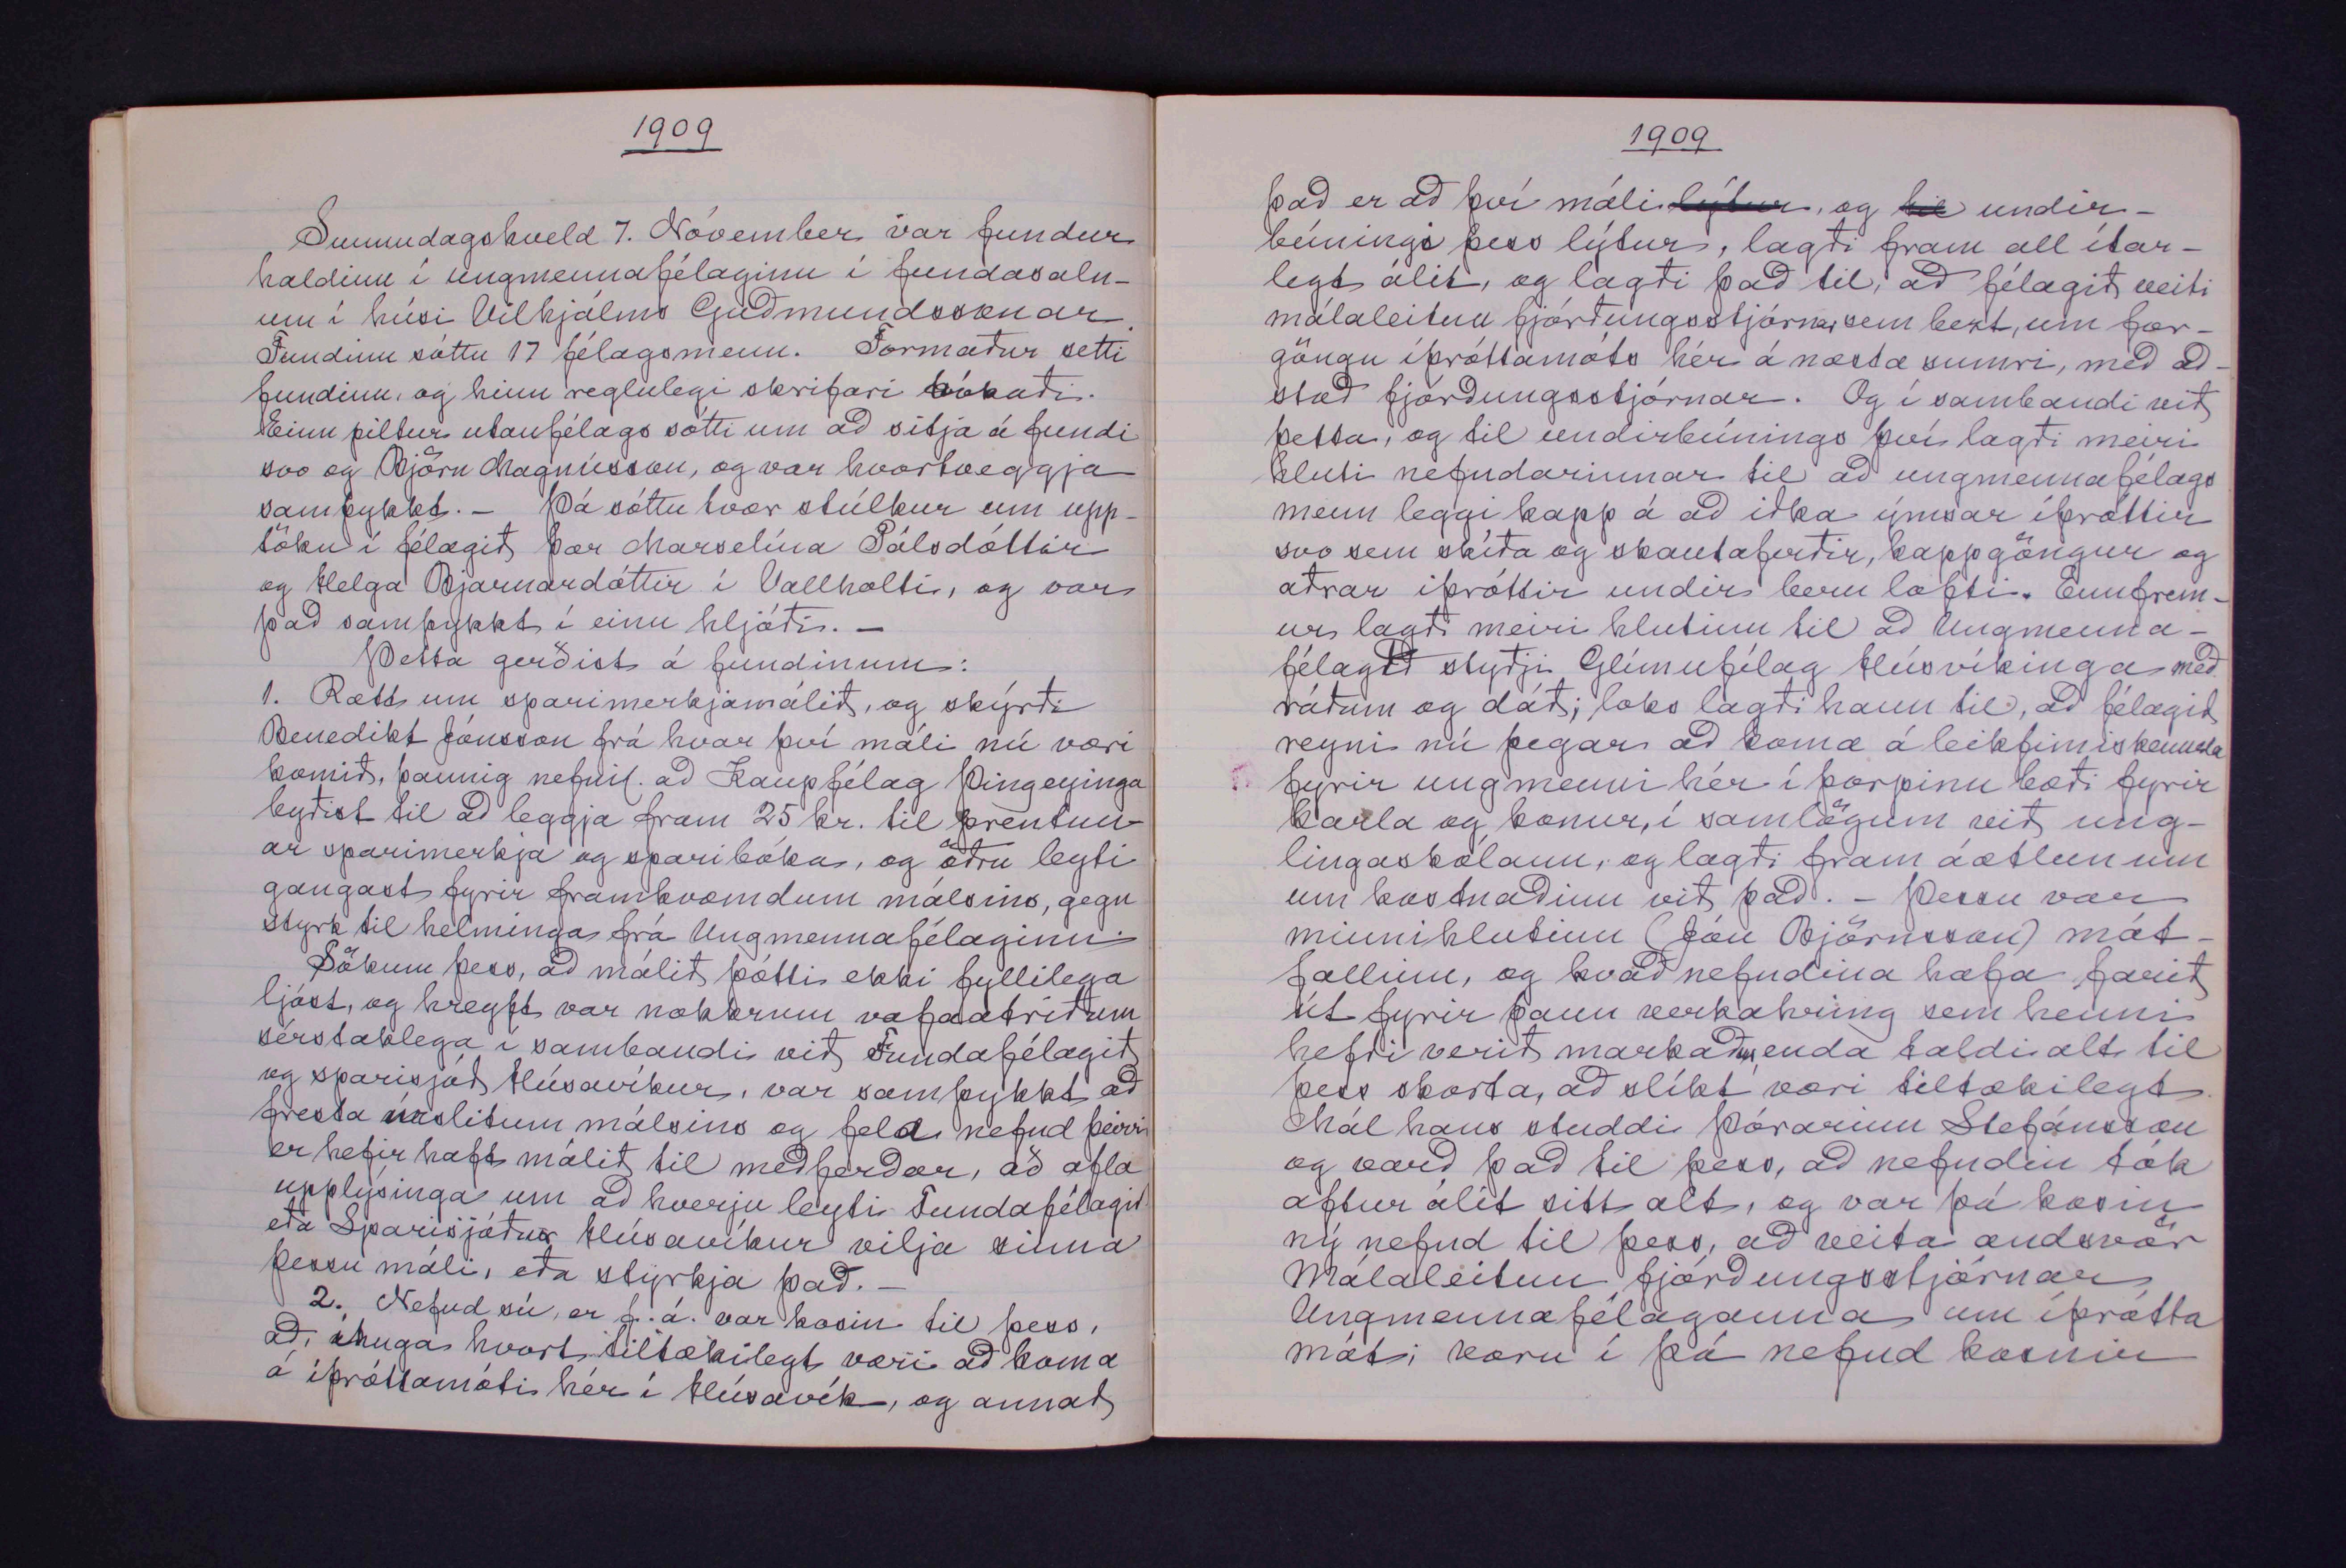 1909
Sunnudagskveld 7. Nóvember var fundur
haldinn í ungmennafélaginu í fundasaln-
um í húsi Vilhjálms Guðmundssonar.
Fundinn sóttu 17 félagsmenn. Formaður setti
fundinn, og hinn reglulegi skrifari bókaði.
Einn piltur utanfélags sótti um að sitja á fundi
svo og Björn Magnússon, og var hvortveggja
samþykkt. - Þá sóttu tvær stúlkur um upp-
töku í félagið þær Marselína Pálsdóttir
og Helga Bjarnardóttir í Vallholti, og var
það samþykkt í einu hljóði. -
Þetta gerðist á fundinum:
1. Rætt um sparimerkjamálið, og skýrði
Benedikt Jónsson frá hvar því máli nú væri
komið, þannig nefnil. að Kaupfélag Þingeyinga
byðist til að leggja fram 25 kr. til prentun-
ar sparimerkja og sparibóka, og öðru leyti
gangast fyrir framkvæmdum málsins, gegn
styrk til helminga frá Ungmennafélaginu.
Sökum þess, að málið þótti ekki fyllilega
ljóst, og hreyft var nokkrum vafaatriðum
sérstaklega í sambandi við Fundafélagið
og sparisjóð Húsavíkur, var samþykkt að
fresta úrslitum málsins og fela nefnd þeirri
er hefir haft málið til meðferðar, að afla
upplýsinga um að hverju leyti Fundafélagið
eða Sparisjóður Húsavíkur vilja sinna
þessu máli, eða styrkja það. -
2. Nefnd sú, er f. á. var kosin til þess,
að íhuga hvort tiltækilegt væri að koma
á íþróttamóti hér í Húsavík, og annað
1909
það er að því máli lýtur, og til undir-
búnings þess lýtur, lagði fram all ítar-
legt álit, og lagði það til, að félagið veiti
málaleitun fjórðungsstjórnar sem bezt, um for-
göngu íþróttamóts hér á næsta sumri, með að-
stoð fjórðungsstjórnar. Og í sambandi við
þetta, og til undirbúnings því lagði meiri
hluti nefndarinnar til að ungmennafélags
menn leggi kapp á að iðka ýmsar íþróttir
svo sem skíða og skautaferðir, kappgöngur og
aðrar íþróttir undir beru lofti. Ennfrem-
ur lagði meiri hlutinn til að Ungmenna-
félagið styðji Glímufélag Húsvíkinga með
ráðum og dáð; loks lagði hann til, að félagið
reyni nú þegar að koma á leikfimiskennslu
fyrir ungmenni hér í þorpinu bæði fyrir
karla og konur, í samlögum við ung-
lingaskólann, og lagði fram áætlun um
um kostnaðinn við það. - Þessu var
minnihlutinn (Jón Björnsson) mót-
fallinn, og kvað nefndina hafa farið
út fyrir þann verkahring sem henni
hefði verið markaður, enda taldi alt til
þess skorta, að slíkt væri tiltækilegt.
Mál hans studdi Þórarinn Stefánsson
og varð það til þess, að nefndin tók
aftur álit sitt alt, og var þá kosin
ný nefnd til þess, að veita andsvör
Málaleitun fjórðungsstjórnar
Ungmennafélaganna um íþrótta
mót; voru í þá nefnd kosnir